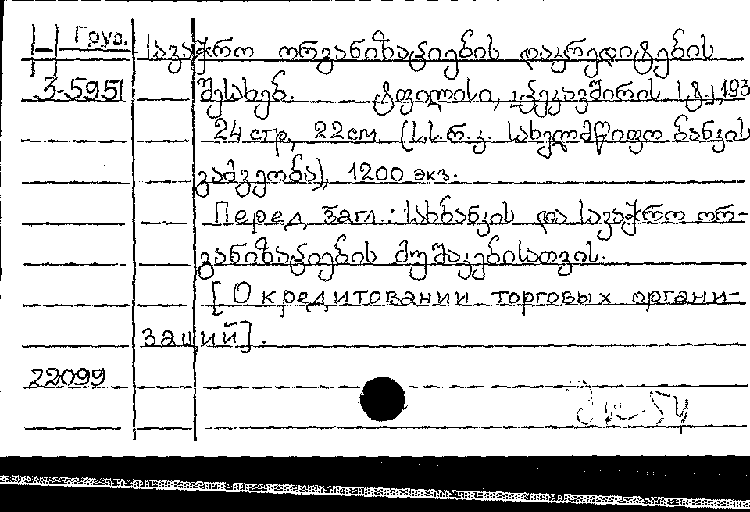 Груз. სავაჭრო ორგანიზაციების დაკრედიტების
3-5951 შესახებ. ტფილისი, "ტექკავშირის" სტ., 193
24 стр., 22 см. (ს.ს.რ.კ. სახელმწიფო ბანკის
გამგეობა), 1200 экз.
Перед загл.: სახბანკის და სავაჭრო ორ-
განიზაციების მუშაკებისათვის.
[О кредитовании торговых органи-
заций].
22099